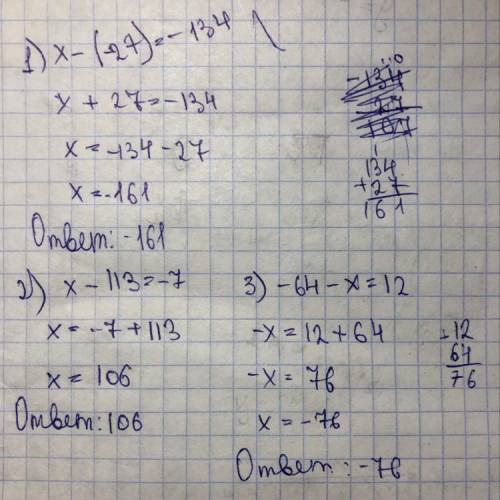 1) x - (-27) = -134
x + 27 = -134
x = -134 - 27
x = -161
Ответ: -161
134
+ 27
161
2) x - 113 = -7
x = -7 + 113
x = 106
Ответ: 106
3) -64 - x = 12
-x = 12 + 64
-x = 76
x = -76
Ответ: -76
+ 12
64
76